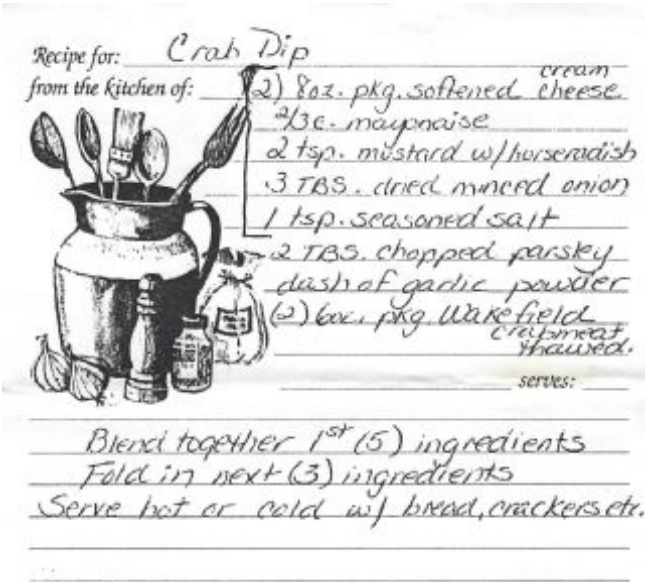 Recipe for: Crab Dip
from the kitchen of:
2) 8oz. pkg. softened cream cheese
2/3 c. mayonaise
2 tsp. mustard w/horseradish
3 TBS. dried minced onion
1 tsp. seasoned salt
2 TBS. chopped parsley
dash of garlic powder
(2) 6oz. pkg. Wakefield
crabmeat
thawed.
serves:
Blend together 1st (5) ingredients
Fold in next (3) ingredients
Serve hot or cold w/ bread, crackers etc.